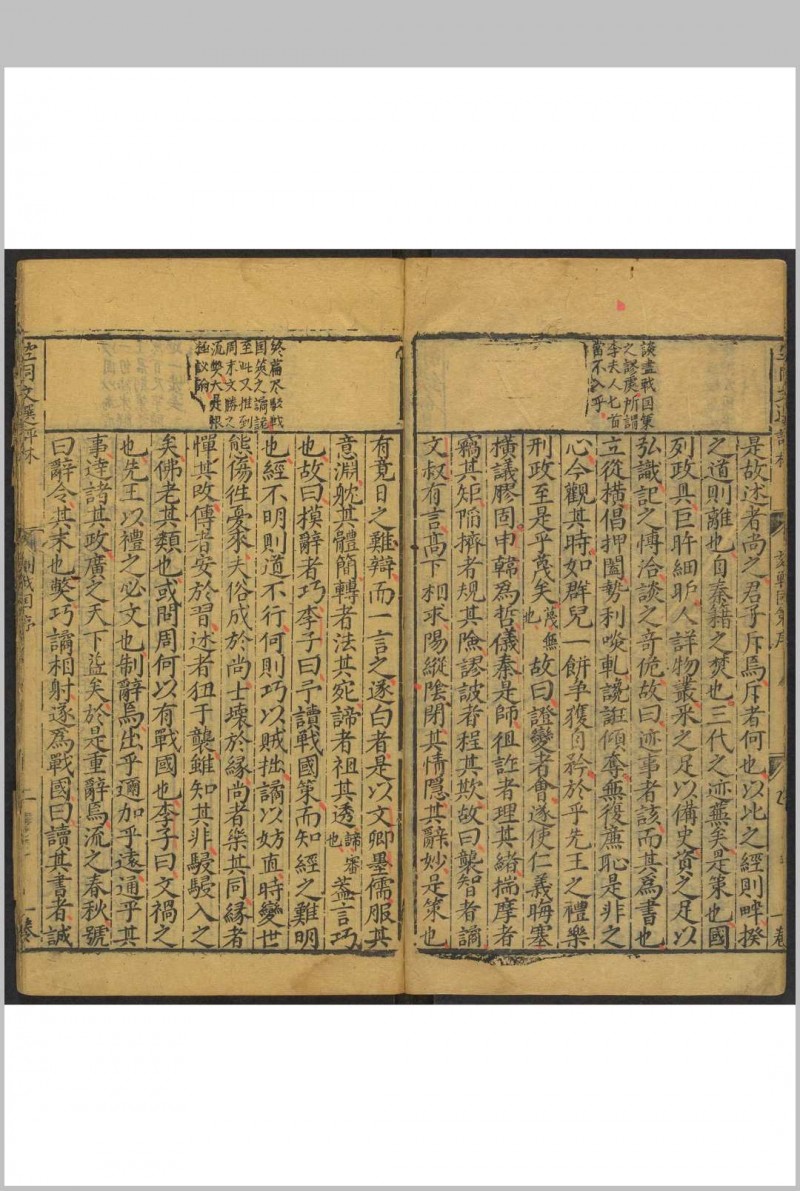 談盡戰國策
之謬戾所謂
李夫人七首
當不入乎
是故述者尚之君子斥焉斥者何也以此之經則畔揆
之道則離也自秦籍之焚也三代之迹蕪矣是策也國
列政具巨昈細眇人詳物叢采之足以備史資之足以
弘識記之愽洽談之奇佹故曰迹事者該而其爲書也
立從橫倡押闔勢利啖軋讒誑傾奪無復㢘恥是非之
心今觀其時如群兒一餅爭獲自矜於乎先王之禮樂
刑政至是乎蔑矣蔑無也故曰證變者會遂使仁義晦塞
橫議膠固申韓爲哲儀秦是師徂詐者理其緒揣摩者
竊其矩陥擠者規其險謬詖者程其欺故曰襲智者譎
文叔有言髙下相求陽縱陰閉其情隱其辭妙是策也
終篇尽駁戰
国策之譎詭
至此又推到
周末文勝之
流弊大是恨
極必納
有竟日之難辯而一言之遂白者是以文卿墨儒服其
意淵躭其體簡轉者法其宛諦者祖其透諦審也蓋言巧
也故曰模辭者巧李子曰予讀戰國策而知經之難明
也經不明則道不行何則巧以賊拙譎以妨直時變世
態傷徃憂來夫俗成於尚士壞於緣尚者樂其同緣者
憚其改傳者安於習述者狃于襲雖知其非駸駸入之
矣佛老其類也或問周何以有戰國也李子曰文禍之
也先王以禮之必文也制辭焉出乎邇加乎逺通乎其
事達諸其政廣之天下益矣於是重辭焉流之春秋號
曰辭令其末也獘巧譎相射遂爲戰國曰讀其書者誠
空同文選評林